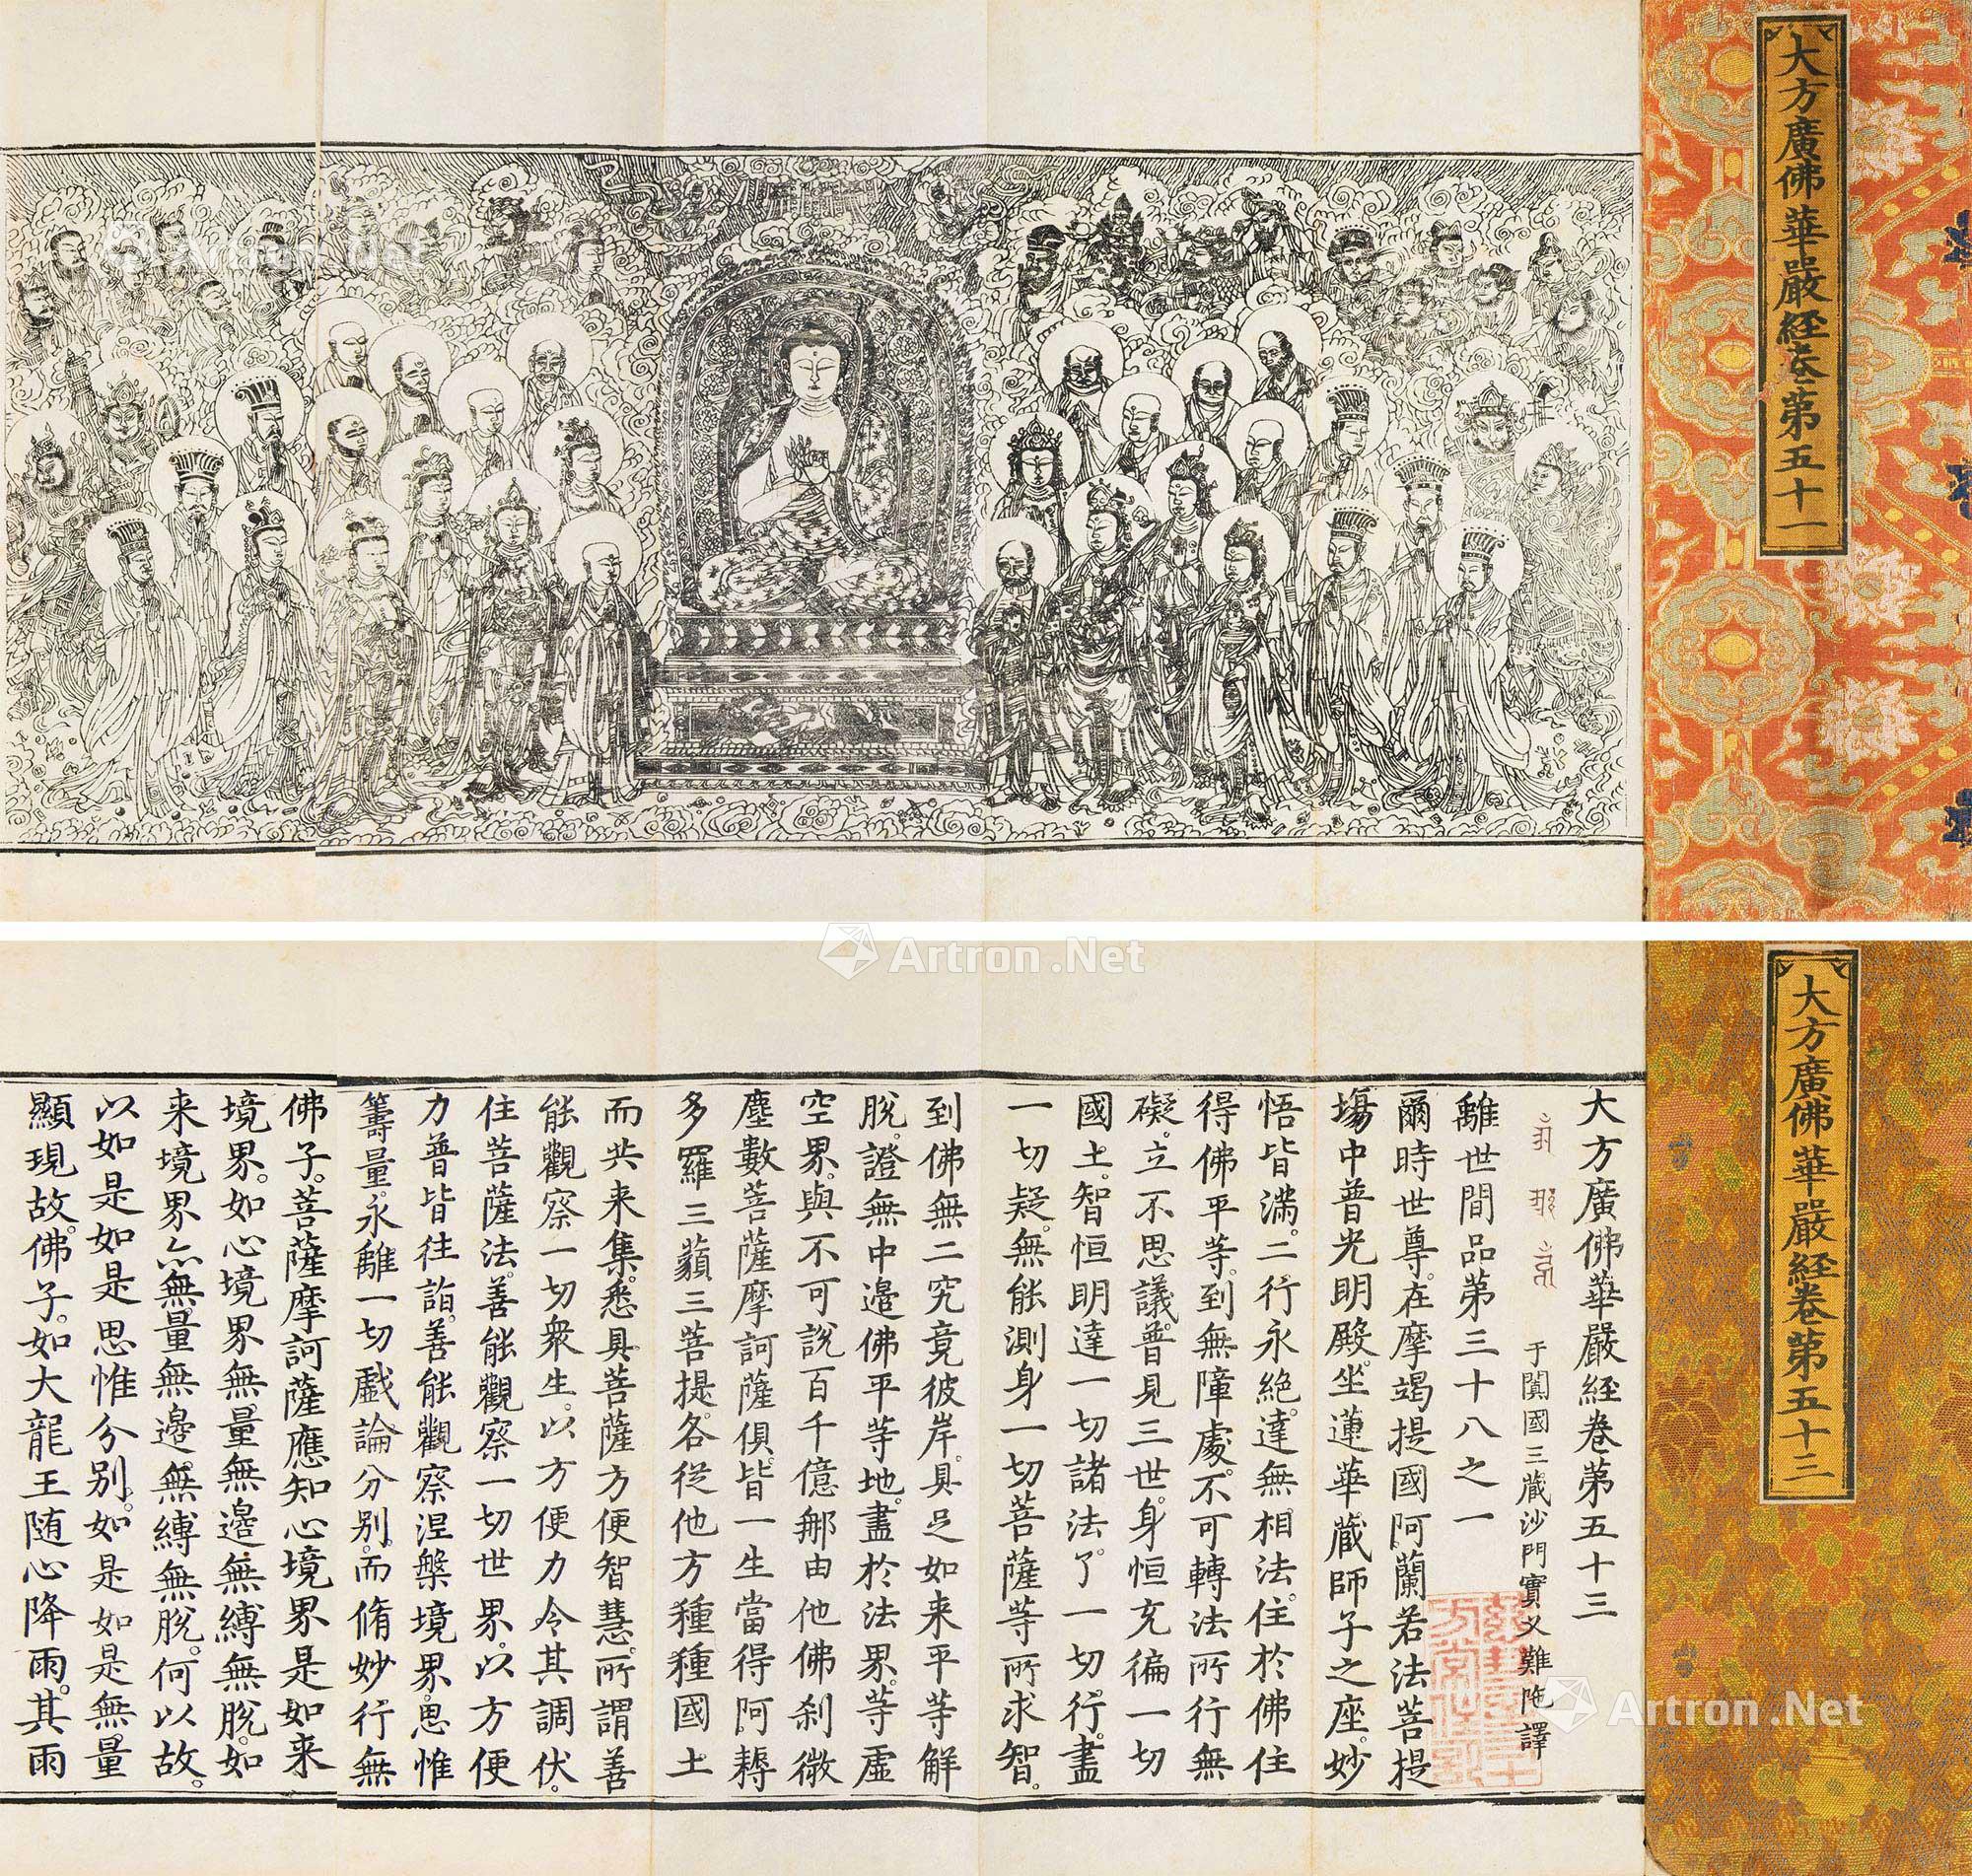 大方廣佛華嚴経卷第五十一
大方廣佛華嚴経卷第五十三
大方廣佛華嚴経卷第五十三
于闐國三藏沙門實叉難陁譯
離世間品第三十八之一
爾時世尊在摩竭提國阿蘭若法菩提
塲中普光明殿坐蓮華藏師子之座妙
悟皆満二行永絶達無相法住於佛住
得佛平等到無障處不可轉法所行無
礙立不思議普見三世身恒充徧一切
國土智恒明達一切諸法了一切行盡
一切疑無能測身一切菩薩等所求智
到佛無二究竟彼岸具足如来平等解
脫證無中邊佛平等地盡於法界等虛
空界與不可說百千億那由他佛刹微
塵數菩薩摩訶薩俱皆一生當得阿耨
多羅三藐三菩提各從他方種種國土
而共来集悉具菩薩方便智慧所謂善
能觀察一切衆生以方便力令其調伏
住菩薩法善能觀察一切世界以方便
力普皆往詣善能觀察涅槃境界思惟
籌量永離一切戲論分別而脩妙行無
佛子菩薩摩訶薩應知心境界是如来
境界如心境界無量無邊無縛無脫如
来境界亦無量無邊無縛無脫何以故
以如是如是思惟分別如是如是無量
顯現故佛子如大龍王随心降雨其雨
Artron.Net
Artron.Net
Artron.Net